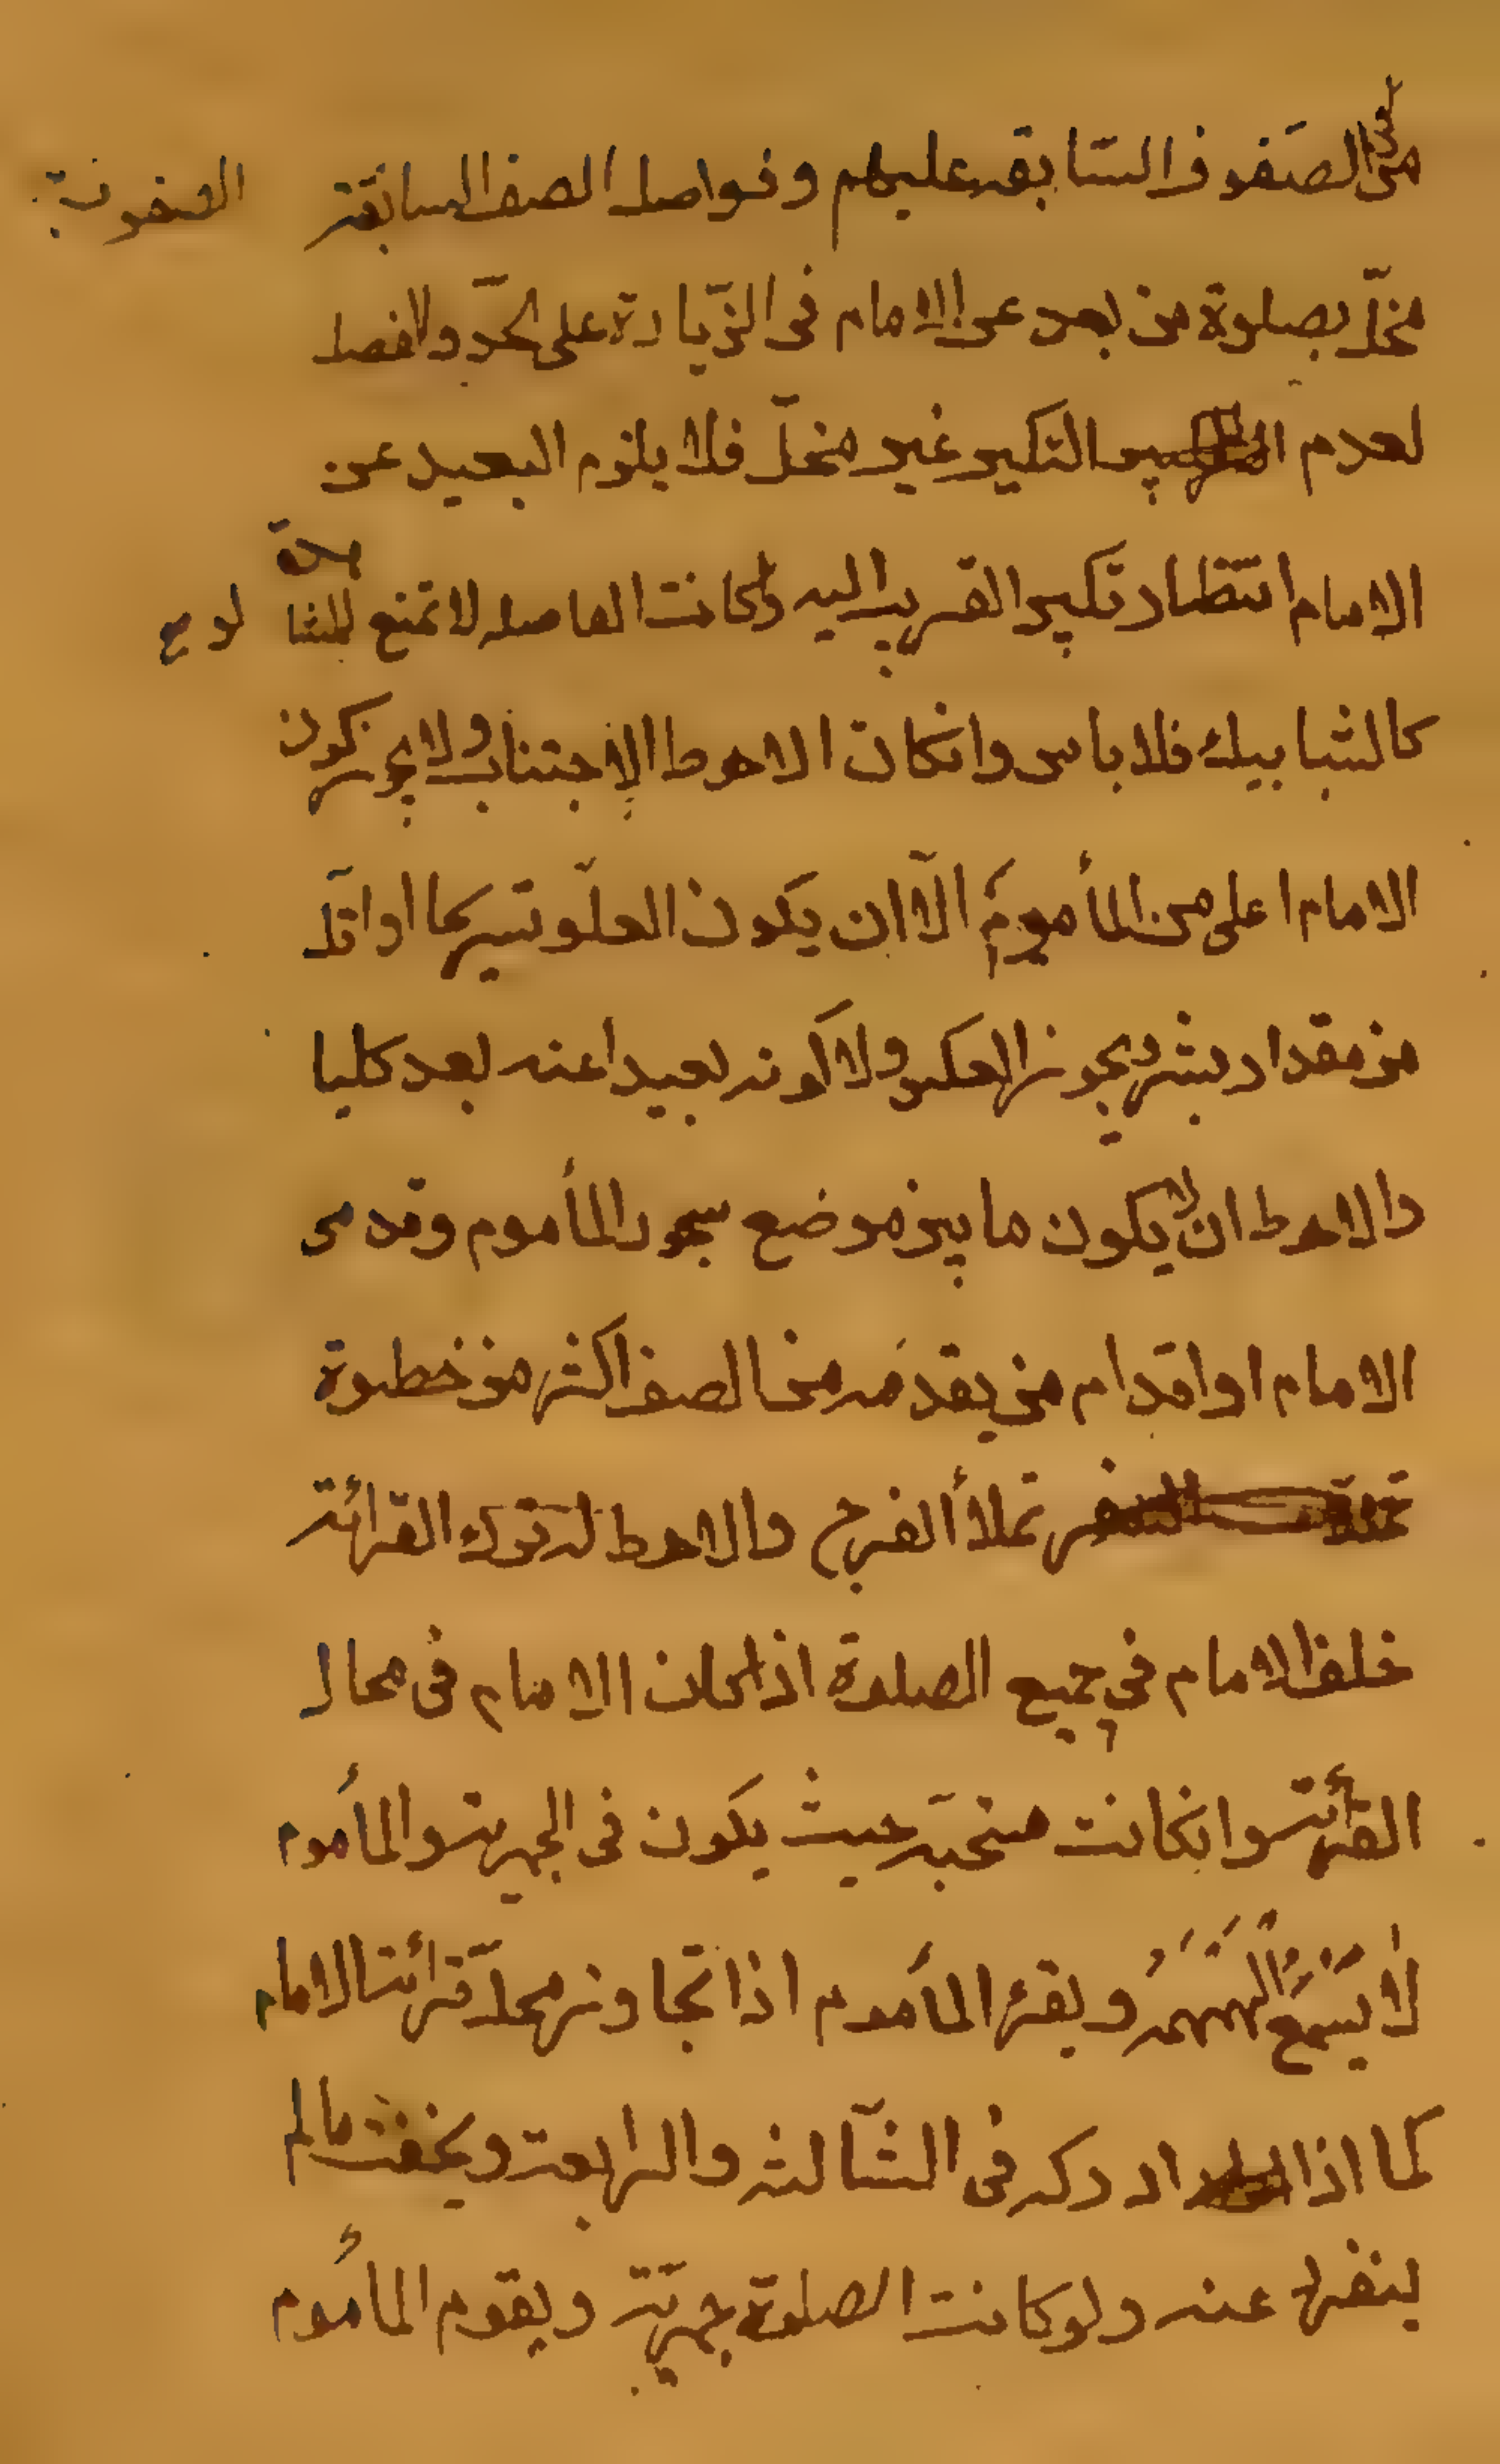 من فى الصفوف السّابقه عليهم وفواصل الصف السابقة
مخلّ بصلوة من بعد عن الامام فى الزّيادة على الحدّ والفصل
لعدم التكبير غير مخلّ فلا يلزم البعيد عن
الامام انتظار تكبير القريب اليه ولو كانت الفاصله لا تمنع المشاهدة
كالشبابيك فلا باس وانكان الاحوط الاجتناب ولا يجوز كون
الامام اعلى من المأموم الّا ان يكون العلّو تسريحا او اقلّ
من مقدار بشر ويجوز العكس ولا كونه بعيدا عنه بعد كليا
والاحوط ان لا يكون ما بين موضع سجود المأموم وقدمى
الامام او اقدام من يقدمه من الصف اكثر من خطوة
تملأ الفرج والاحوط له ترك القرائة
خلف الامام في جميع الصلوة اذا كان الامام فى محال
القرائة وانكانت مستحبّه حيث يكون فى الجهريه والمأموم
لا يسمع الهمهمه ويقرء المأموم اذا تجاوز محلّ قرائة الامام
كما اذا ادركه فى الثّالثه والرابعة ويخفت ما لم
ينفرد عنه ولو كانت الصلوة جهريّة ويقوم المأموم
الصفوف